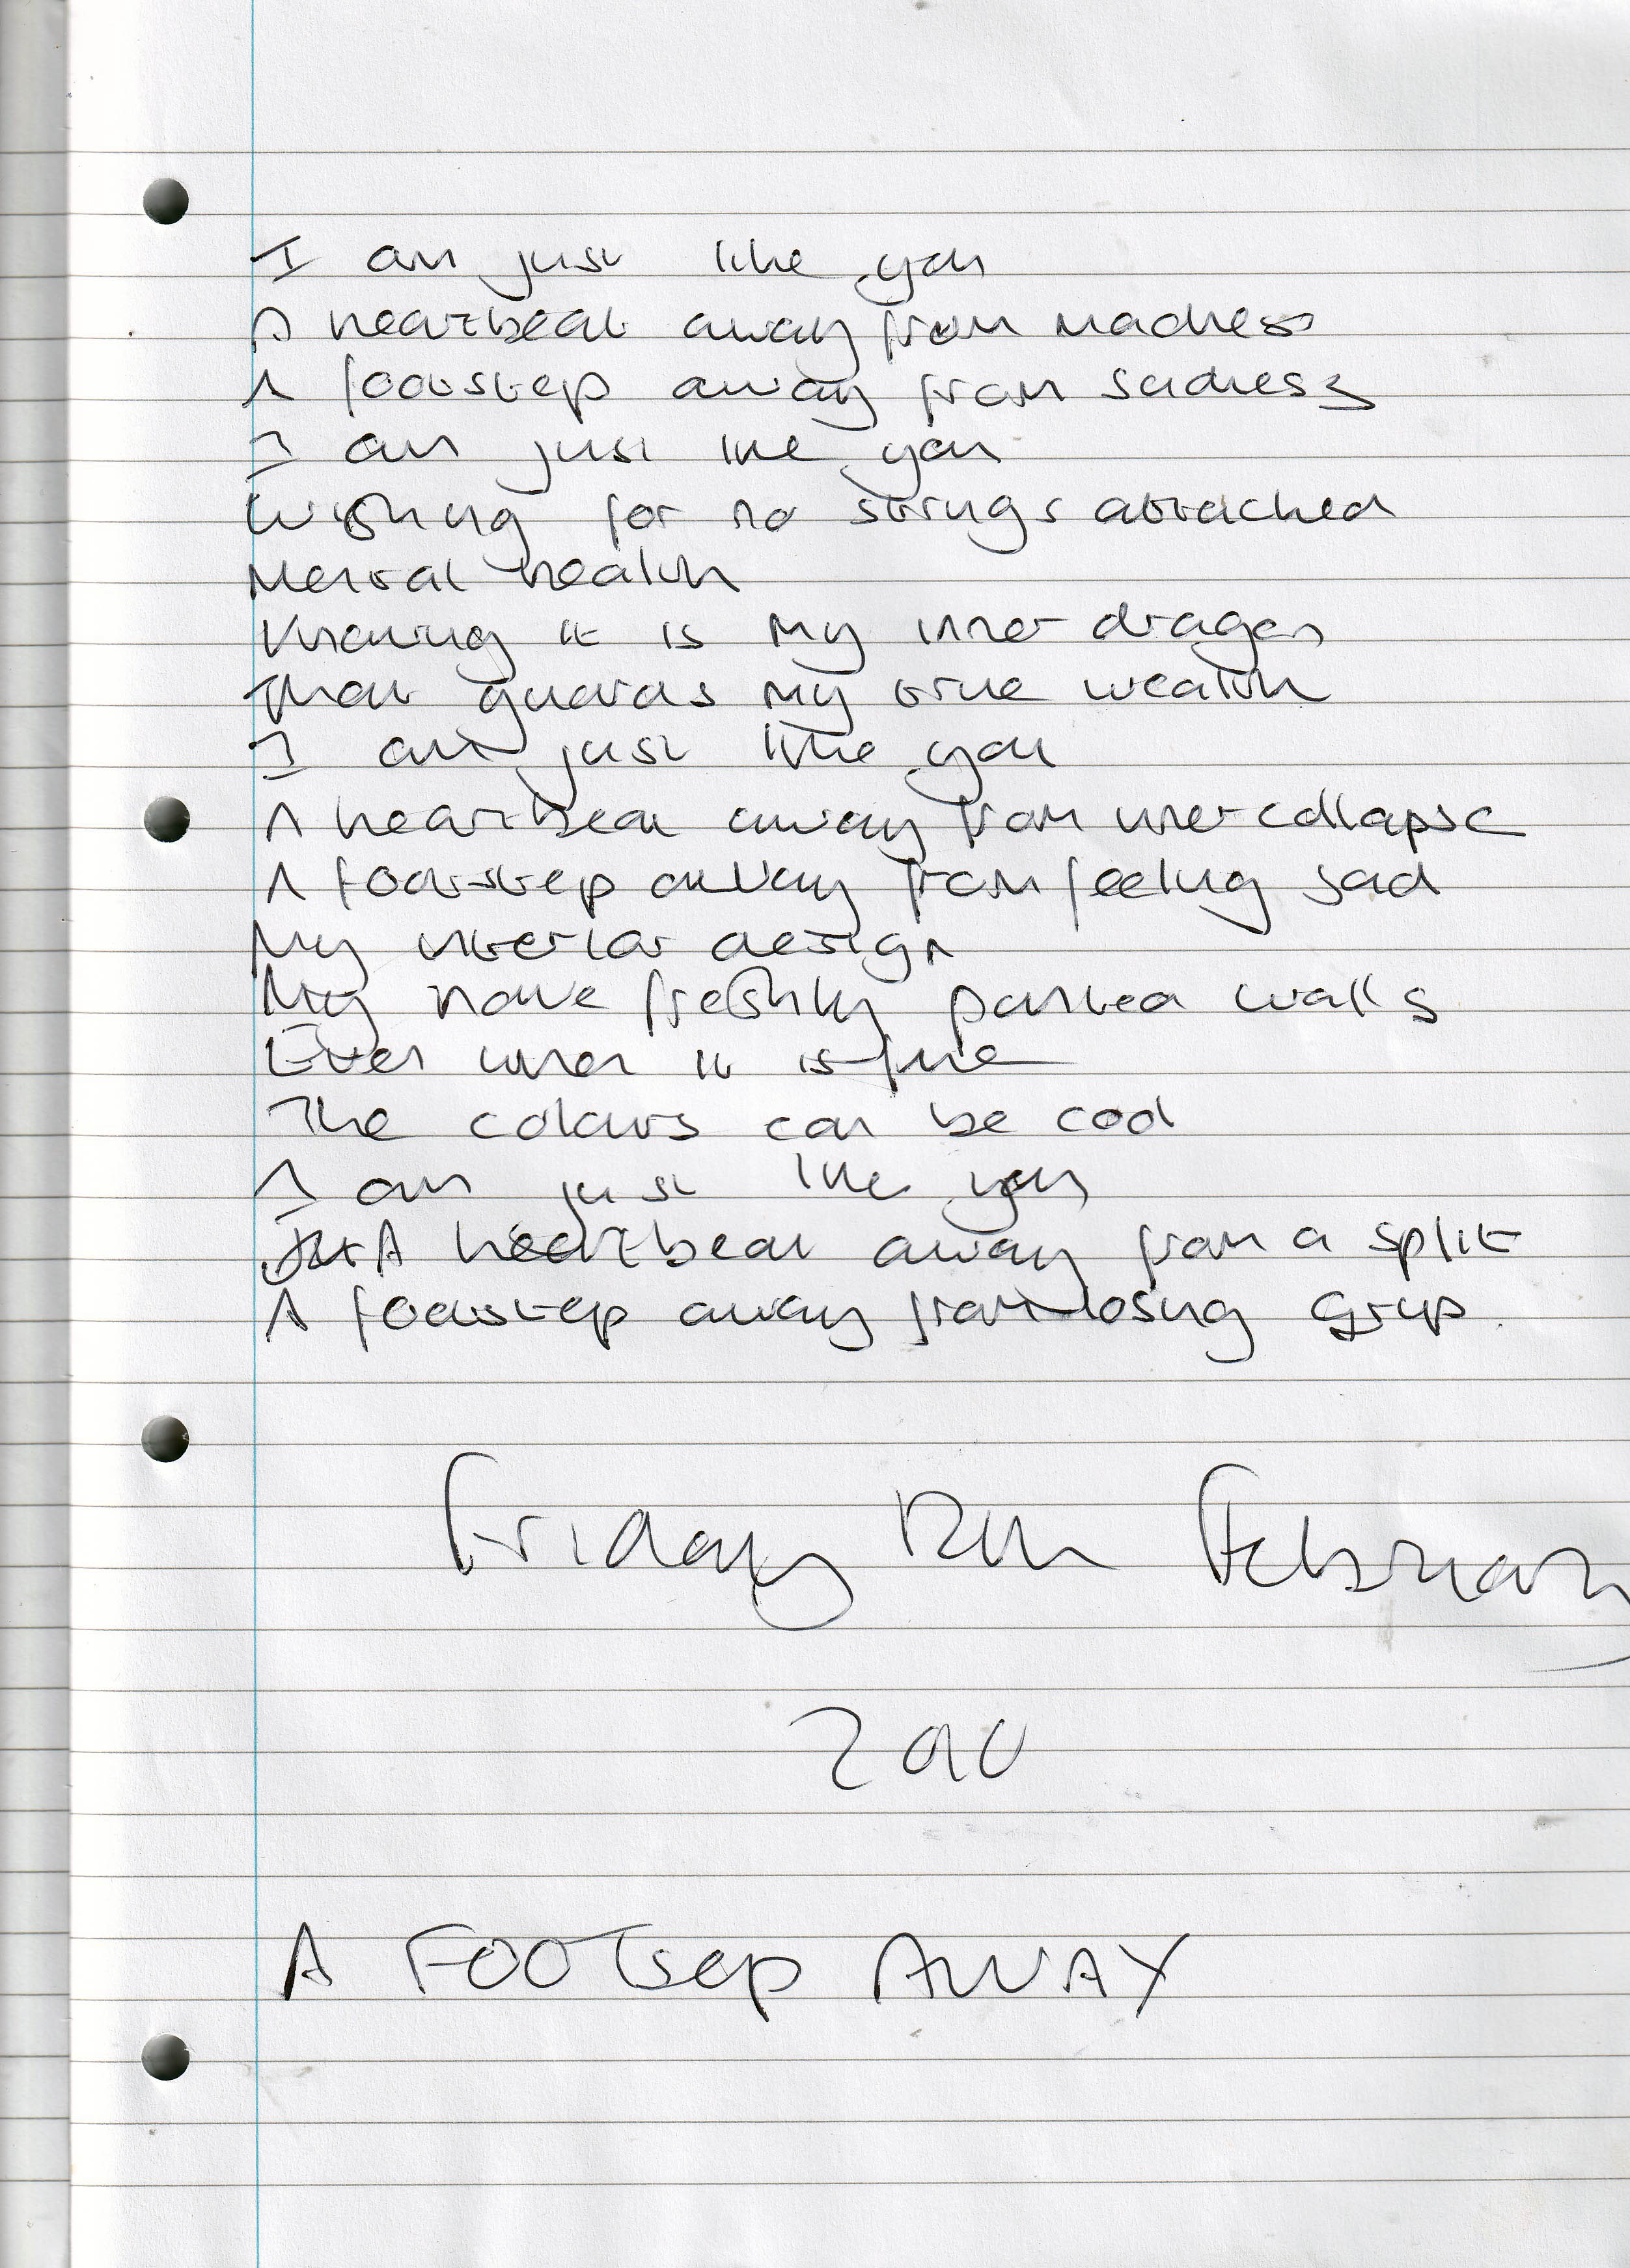 I am just like you
A heartbeat away from madness
A footstep away from sadness
I am just like you
Wishing for no strings attached
Mental health
Knowing it is my inner dragon
That guards my true wealth
I am just like you
A heartbeat away from inner collapse
A footstep away from feeling sad
My interior design
My freshly painted walls
Even when it is fine
The colours can be cool
I am just like you
A heartbeat away from a split
A footstep away from losing grip.
Friday 12th February
A FOOTsep AWAY